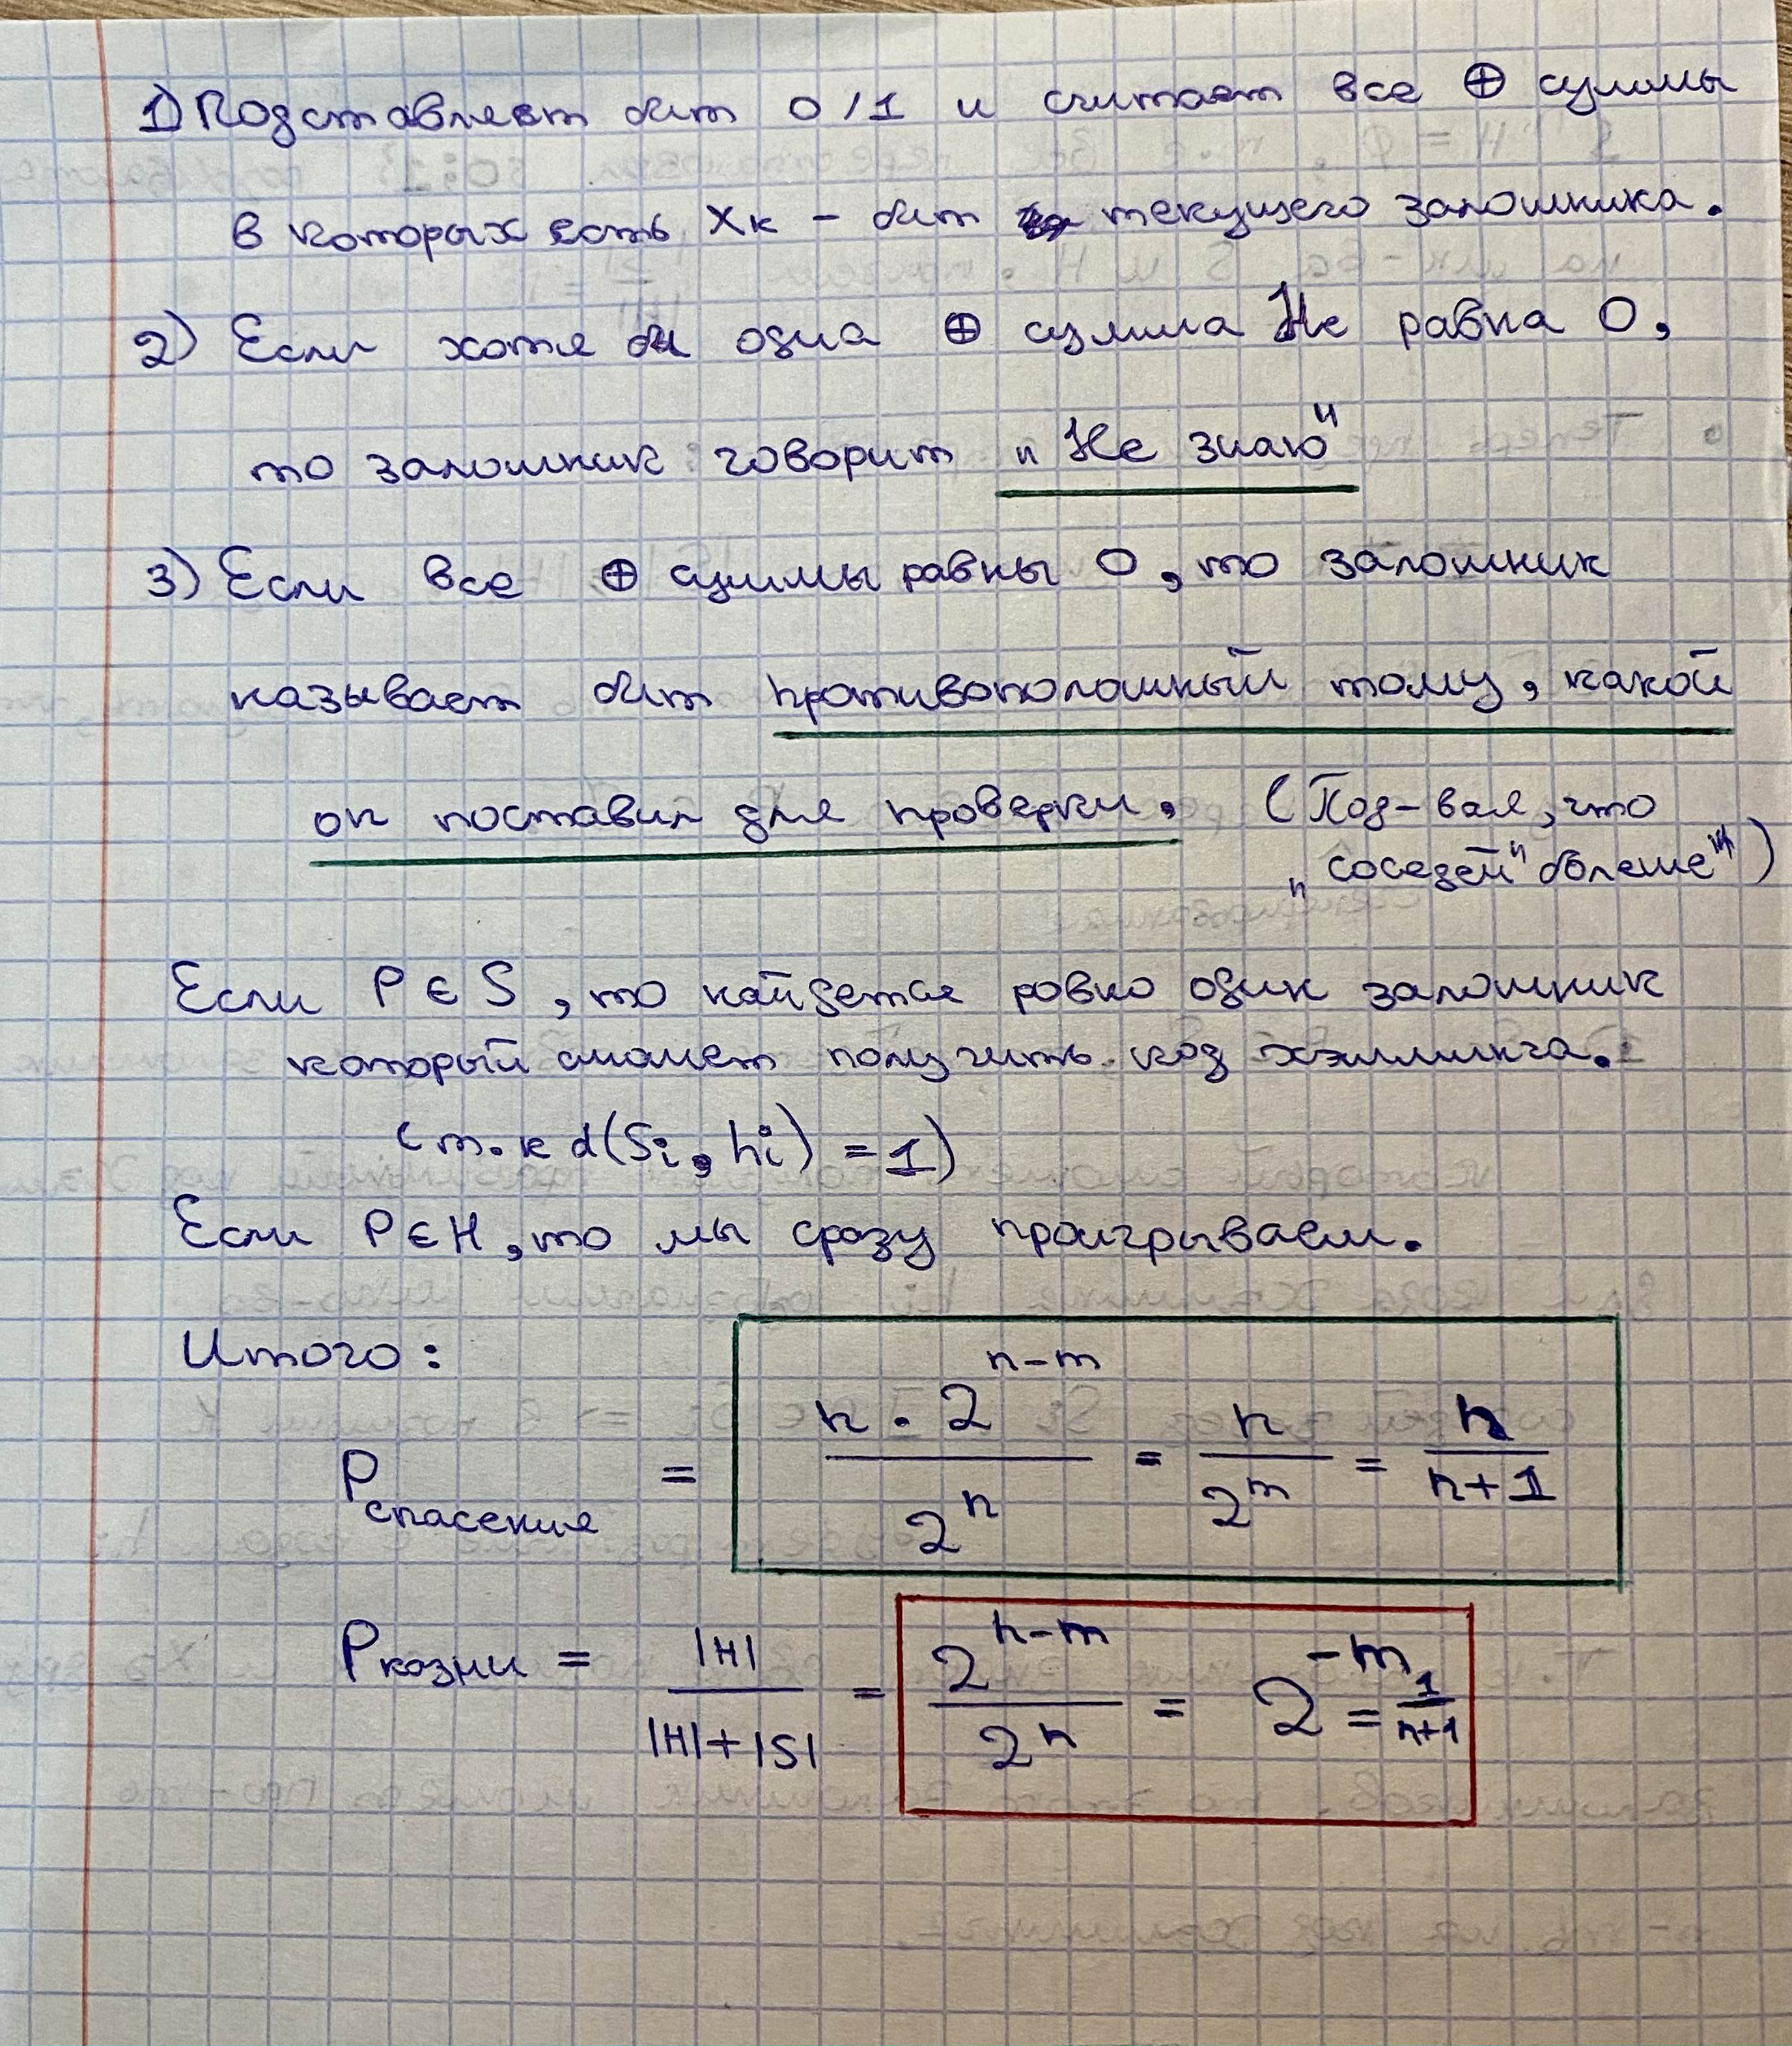 1) Подставляет бит 0/1 и считает все ⊕ суммы
в которых есть Xк – бит текущего заложника.
2) Если хотя бы одна ⊕ сумма Не равна 0,
то заложник говорит „Не знаю"
3) Если все ⊕ суммы равны 0, то заложник
называет бит противоположный тому, какой
он поставил для проверки. (Под-вая, что
„соседей" больше")
Если P ∈ S, то найдется ровно один заложник
который сможет получить код хэмминга.
(т.к d(Si, hi) = 1)
Если P ∈ H, то мы сразу проигрываем.
Итого:
P спасения = n · 2^(n-m) / 2^n = n / 2^m = n / (n+1)
P казни = |H| / (|H|+|S|) = 2^(n-m) / 2^n = 2^(-m) = 1 / (n+1)